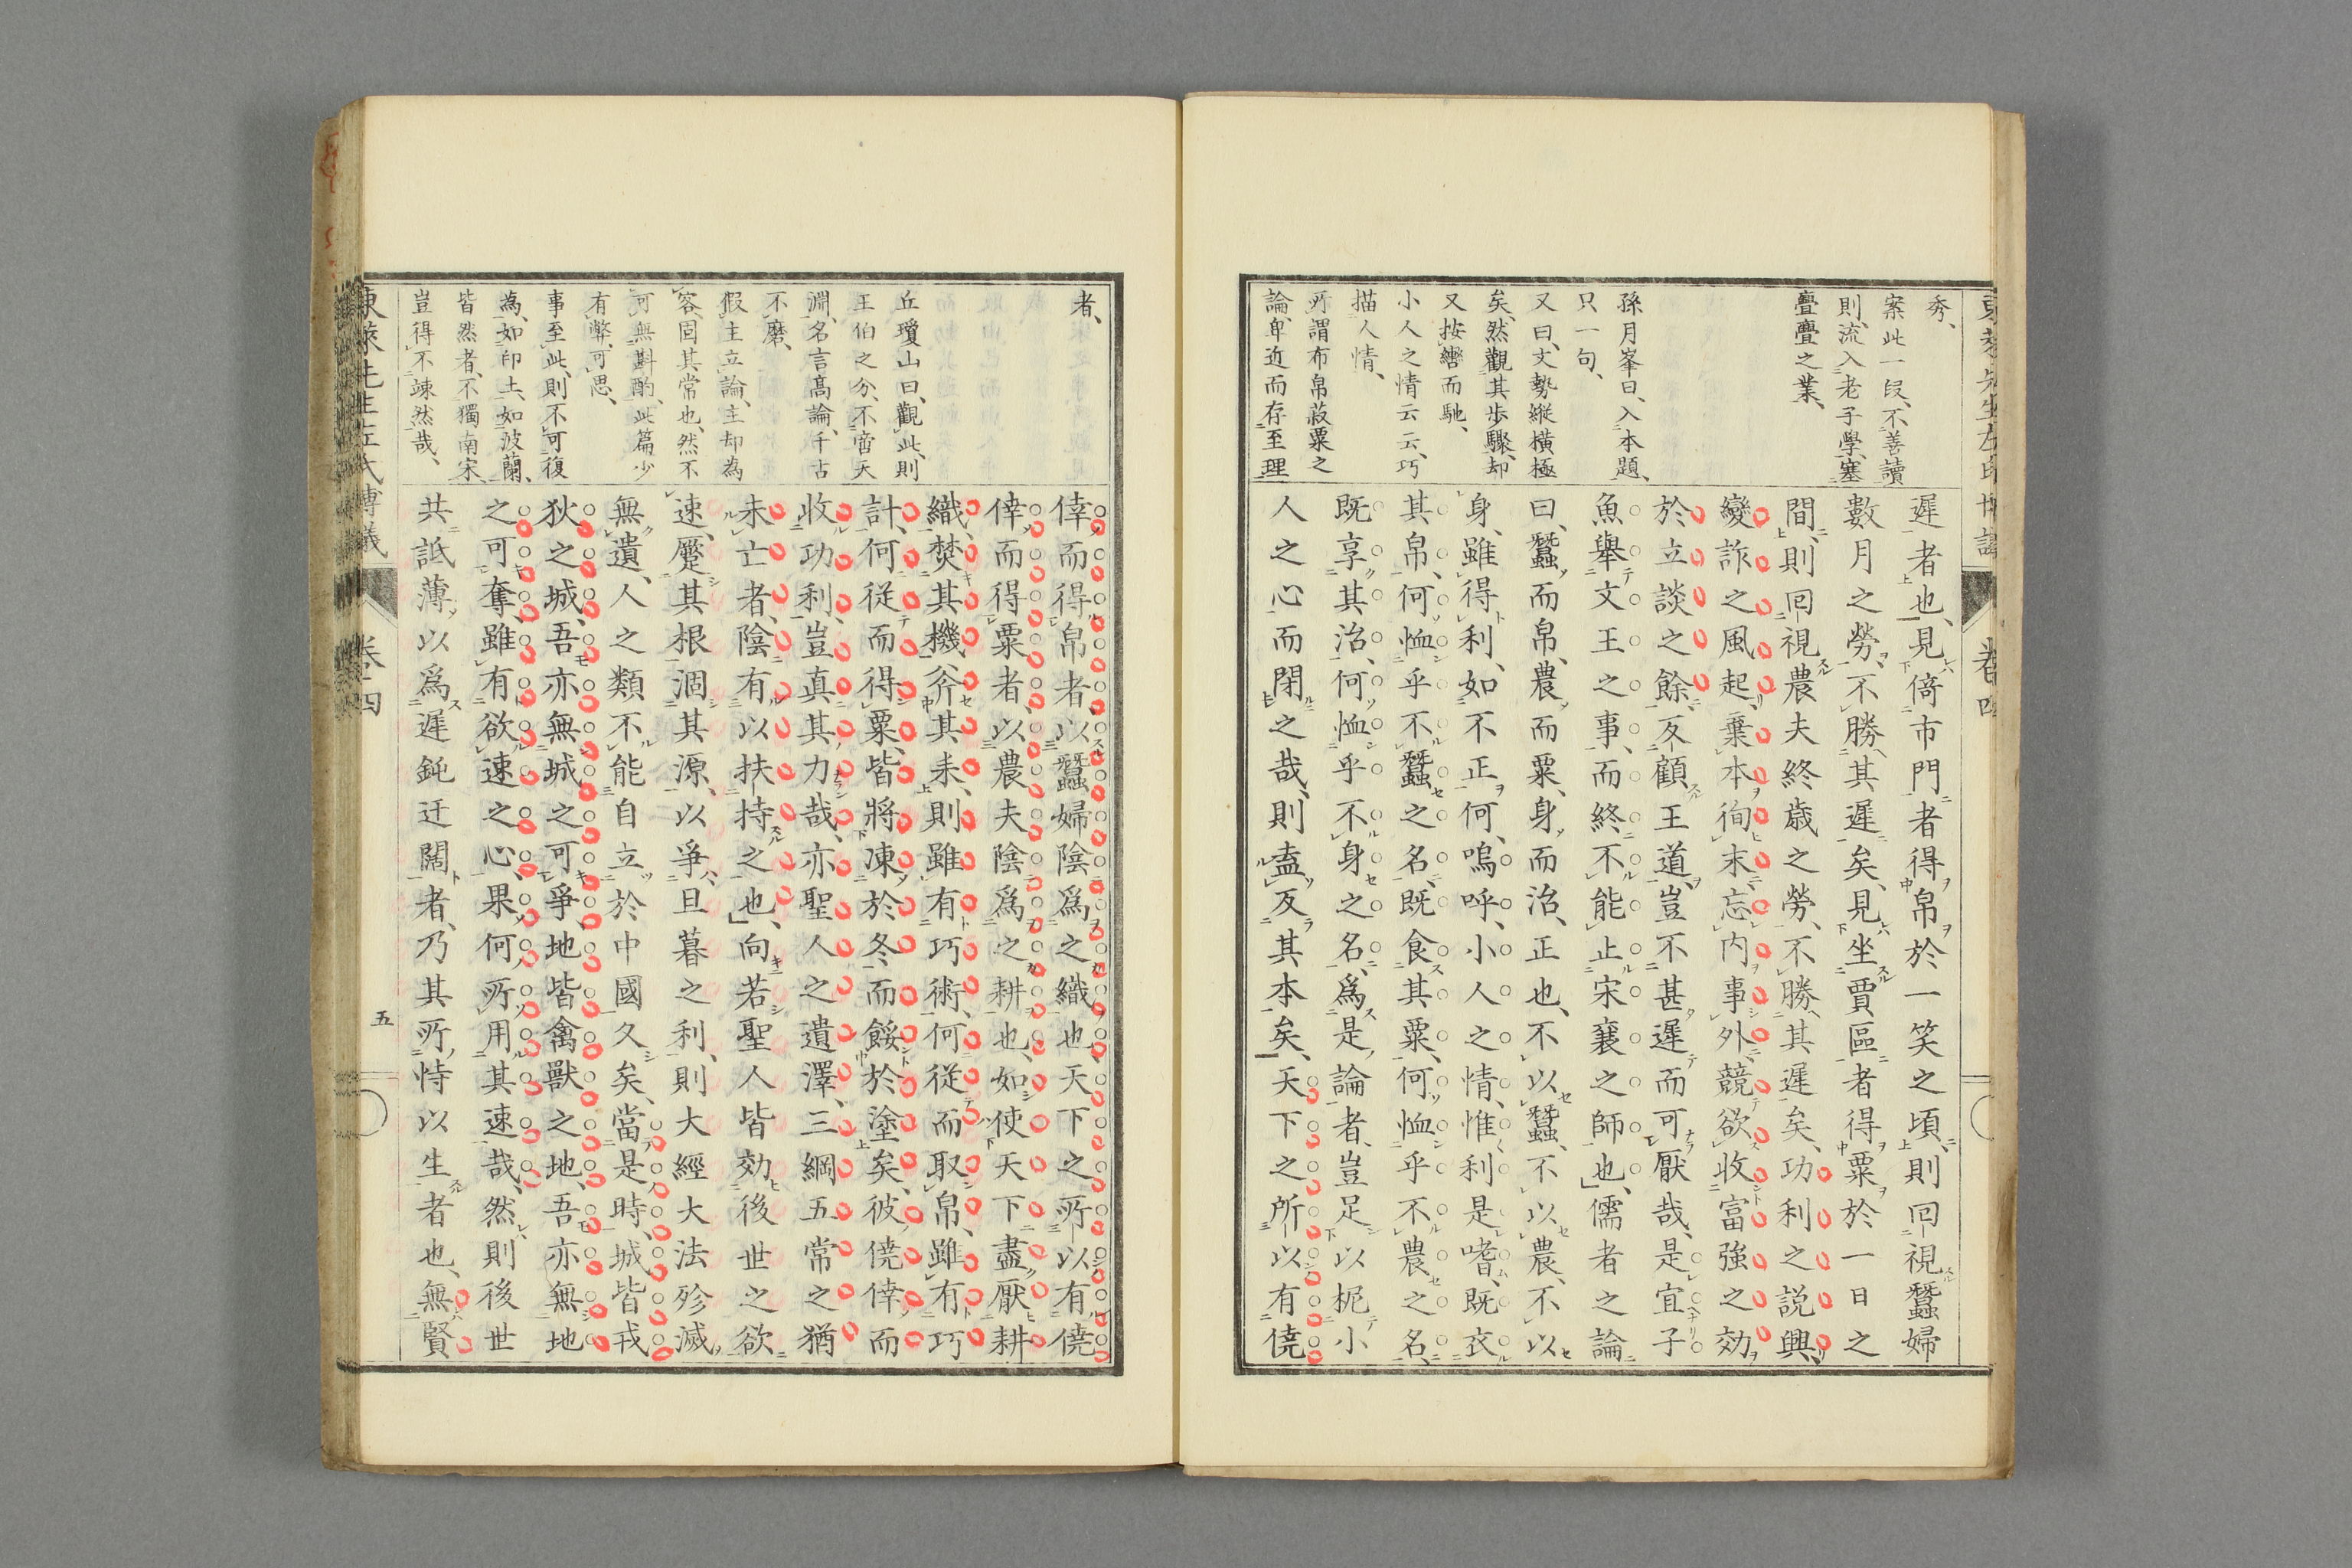 秀、
案此一段、不善讀
則、流入老子學、塞
亹亹之業、
孫月峯曰、入本題、
只一句、
又曰、文勢縱橫極
矣、然觀其步驟、却
又按轡而馳、
小人之情云云、巧
描人情、
所謂布帛菽粟之
論、卑近而存至理
遲者也、見倚市門者得帛於一笑之頃、則回視蠶婦
數月之勞、不勝其遲矣、見坐賈區者得粟於一日之
間、則回視農夫終歲之勞、不勝其遲矣、功利之説興、
變詐之風起、棄本徇末、忘內事外、競欲收富強之効
於立談之餘、反顧王道、豈不甚遲而可厭哉、是宜子
魚舉文王之事、而終不能止宋襄之師也、儒者之論
曰、蠶而帛、農而粟、身而治、正也、不以蠶、不以農、不以
身、雖得利、如不正何、嗚呼、小人之情、惟利是嗜、既衣
其帛、何恤乎不蠶之名、既食其粟、何恤乎不農之名、
既享其治、何恤乎不身之名、爲是論者、豈足以柅小
人之心而閉之哉、則盍反其本矣、天下之所以有僥
者、
丘瓊山曰、觀此、則
王伯之分、不啻天
淵、名言高論、千古
不磨、
假主立論、主却為
客、固其常也、然不
可無斟酌、此篇少
有弊、可思、
事至此、則不可復
為、如印土、如波蘭、
皆然者、不獨南宋、
豈得不竦然哉、
倖而得帛者、以蠶婦陰爲之織也、天下之所以有僥
倖而得粟者、以農夫陰爲之耕也、如使天下盡厭耕
織、焚其機、斧其耒、則雖有巧術、何從而取帛、雖有巧
計、何從而得粟、皆將凍於冬、而餒於塗矣、彼僥倖而
收功利、豈真其力哉、亦聖人之遺澤、三綱五常之猶
未亡者、陰有以扶持之也、向若聖人皆効後世之欲
速、蹙其根涸其源、以爭旦暮之利、則大經大法殄滅
無遺、人之類不能自立於中國久矣、當是時、城皆戎
狄之城、吾亦無城之可爭、地皆禽獸之地、吾亦無地
之可奪、雖有欲速之心、果何所用其速哉、然則後世
共詆薄以爲遲鈍迂闊者、乃其所恃以生者也、無賢
東萊先生左氏博議
卷四
五